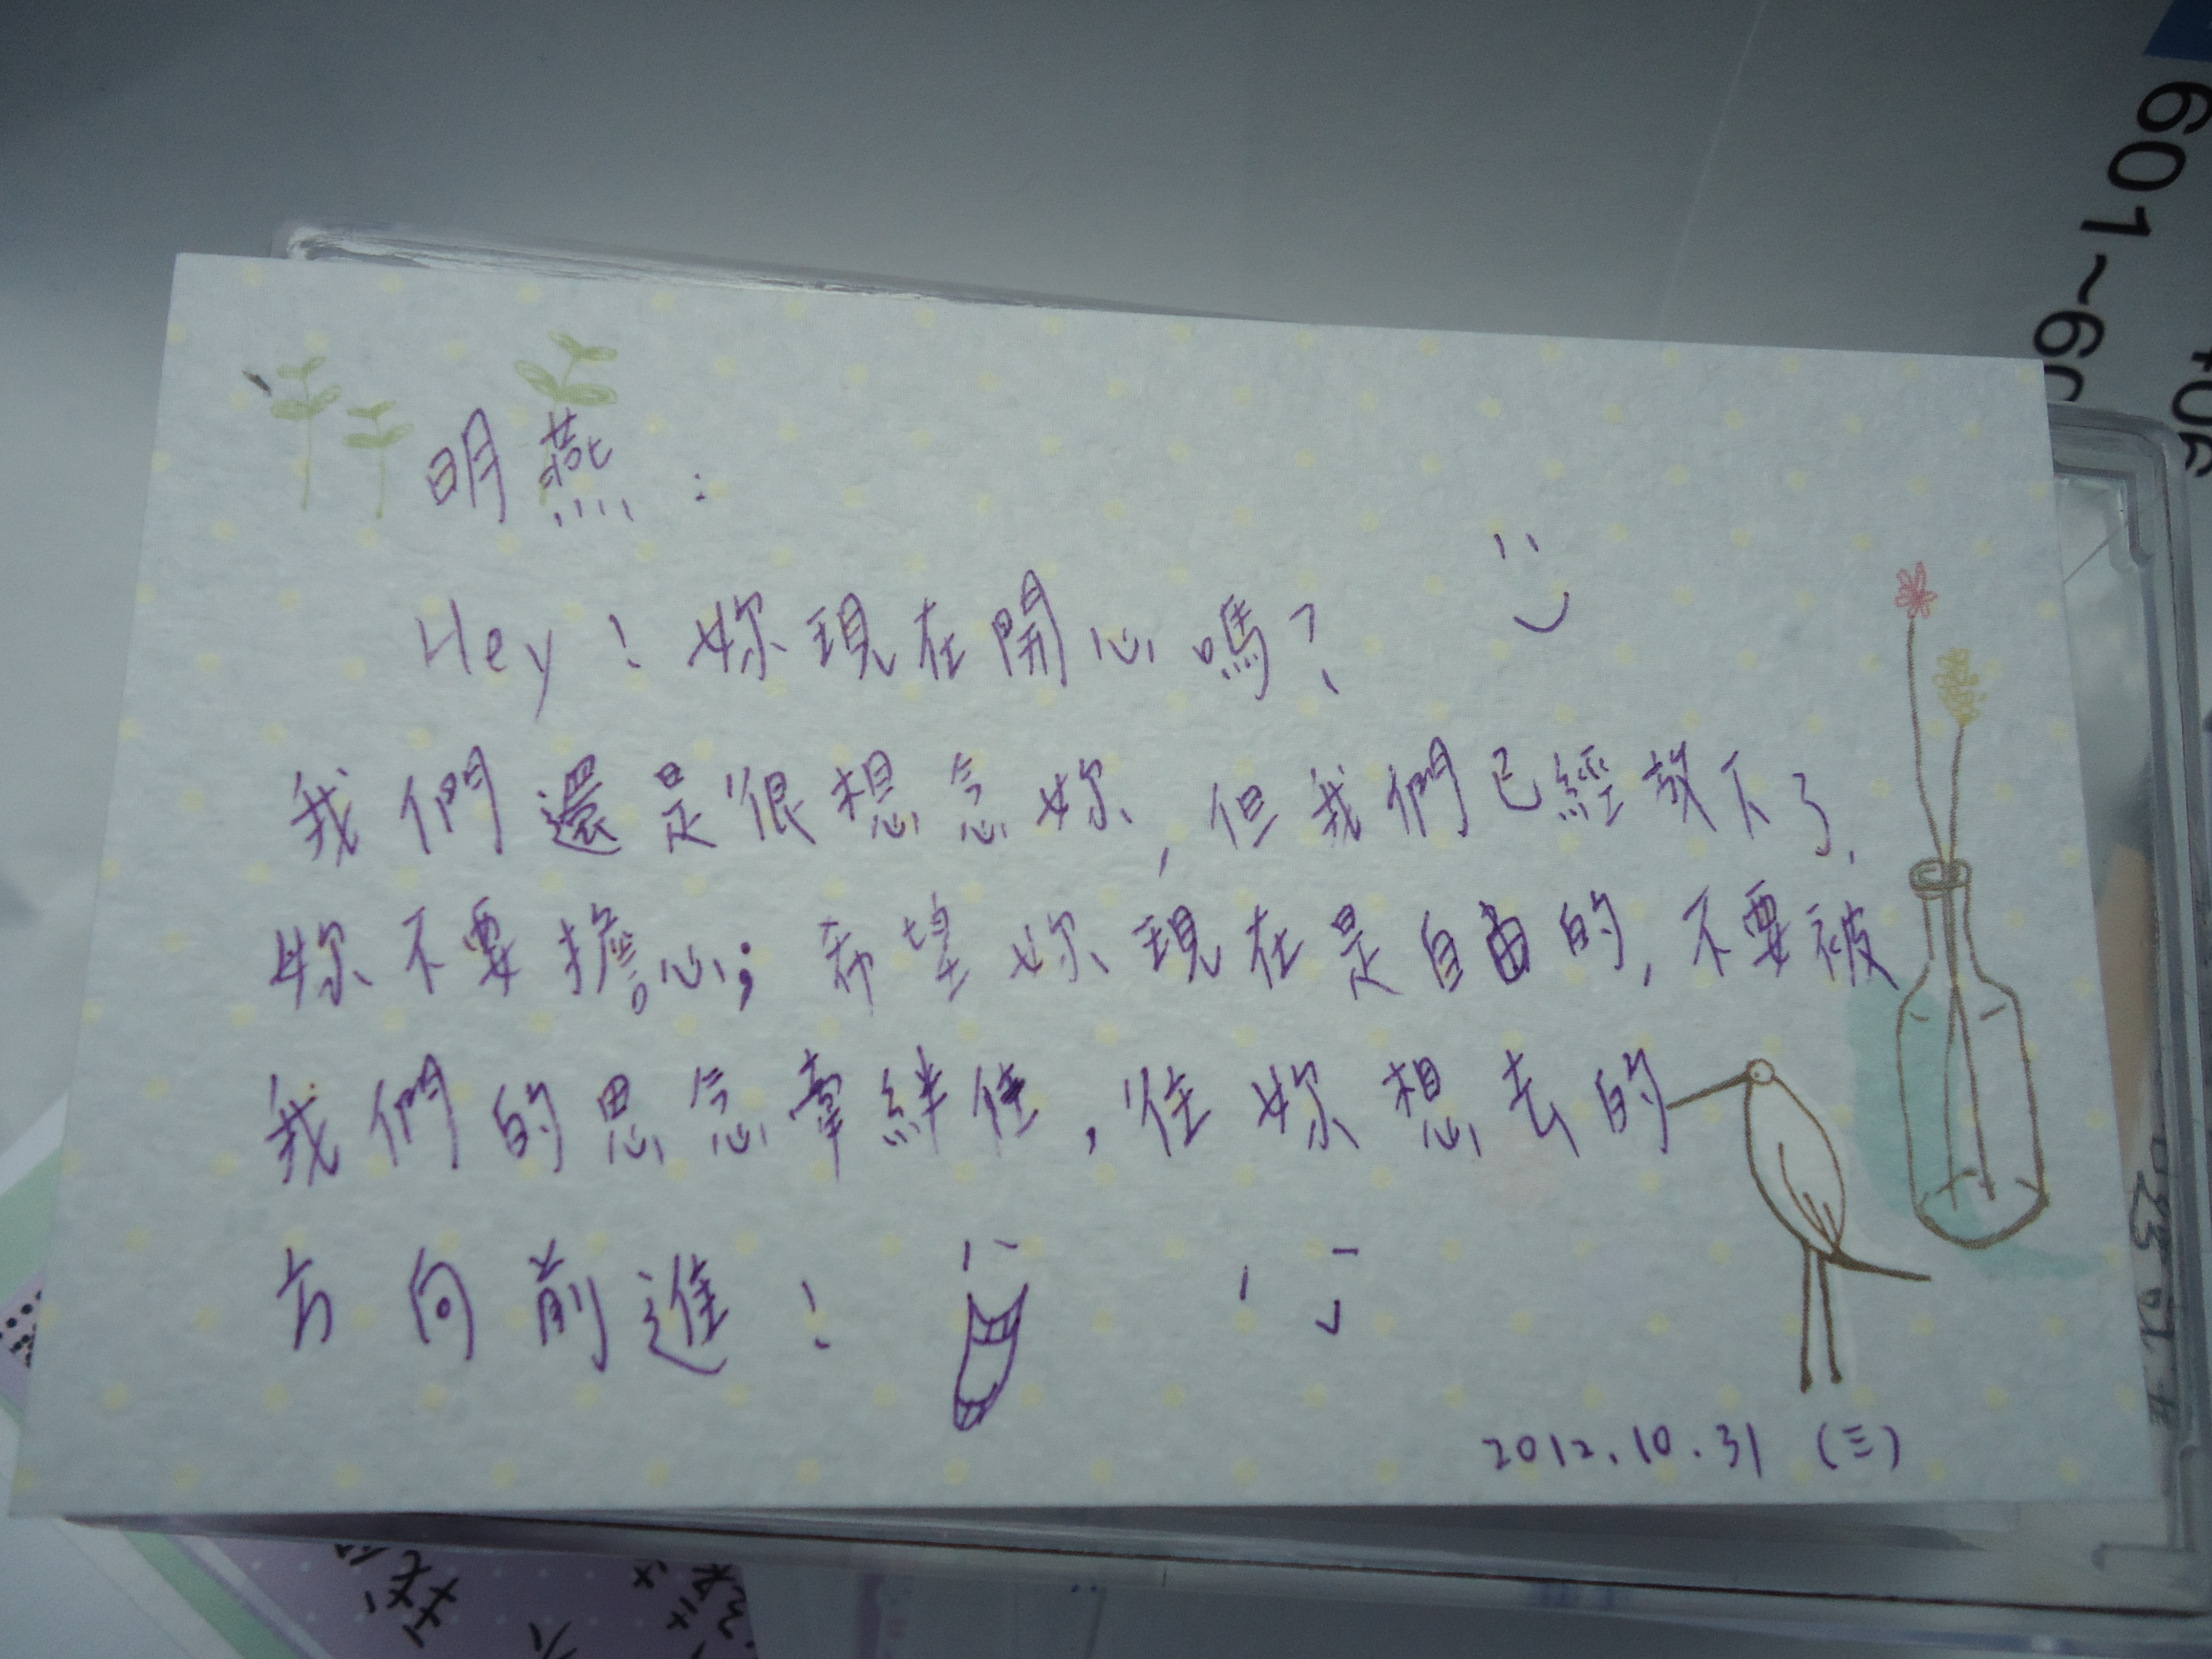 明燕：
Hey！妳現在開心嗎？
我們還是很想念妳，但我們已經放下了，
妳不要擔心；希望妳現在是自由的，不要被
我們的思念牽絆住，往妳想去的
方向前進！
2012.10.31（三）
601~60